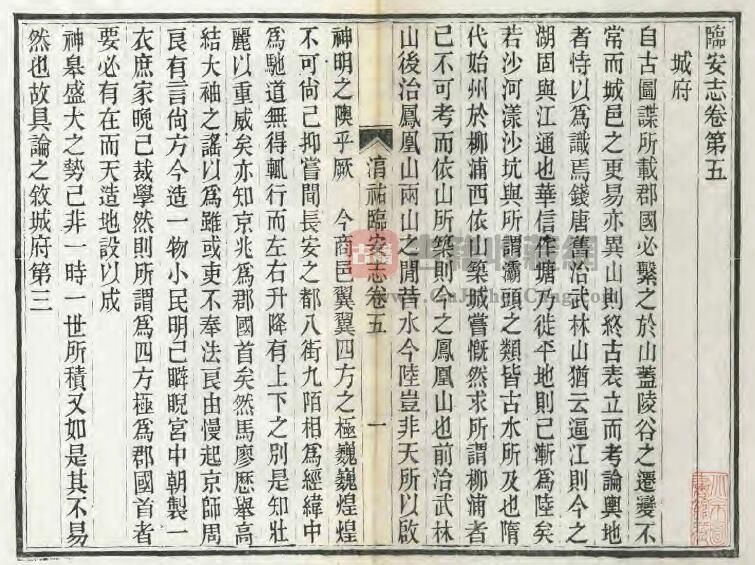 臨安志卷第五
城府
自古圖諜所載郡國必繫之於山蓋陵谷之遷變不
常而城邑之更易亦異山則終古表立而考論輿地
者恃以爲識焉錢唐舊治武林山猶云逼江則今之
湖固與江通也華信作塘乃徙平地則已漸爲陸矣
若沙河漾沙坑與所謂灞頭之類皆古水所及也隋
代始州於柳浦西依山築城嘗慨然求所謂柳浦者
已不可考而依山所築則今之鳳凰山也前治武林
山後治鳳凰山兩山之閒昔水今陸豈非天所以啟
神明之隩乎厥 今商邑翼翼四方之極巍巍煌煌
不可尙已抑嘗聞長安之都八街九陌相爲經緯中
爲馳道無得輒行而左右升降有上下之別是知壯
麗以重威矣亦知京兆爲郡國首矣然馬廖歷舉高
結大袖之謠以爲雖或吏不奉法良由慢起京師周
良有言尙方今造一物小民明已睥睨宮中朝製一
衣庶家晚已裁學然則所謂爲四方極爲郡國首者
要必有在而天造地設以成
神皋盛大之勢已非一時一世所積又如是其不易
然也故具論之敘城府第三
淳祐臨安志卷五
一